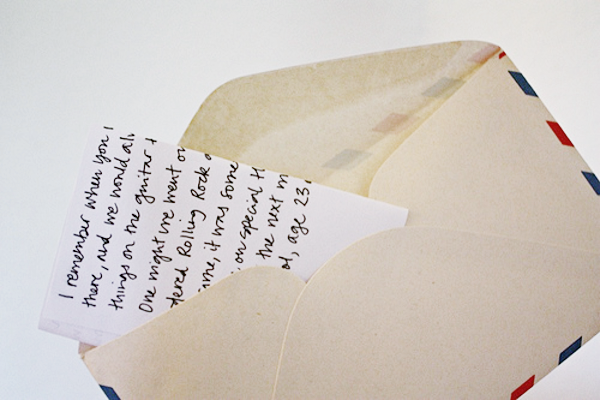 I remember when you
there, and we would
things on the guitar
One night we went
Rolling Rock
it was
on special
the next
age 23